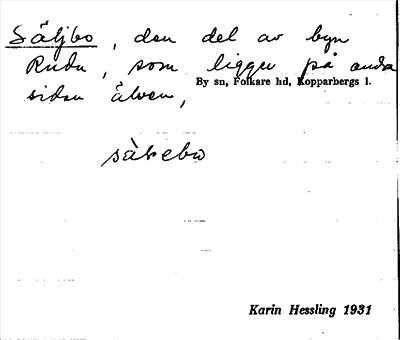 Säljbo, den del av byn
Rudu, som ligger på andra
By sn, Folkare hd, Kopparbergs l.
sidan älven,
säkebo
Karin Hessling 1931